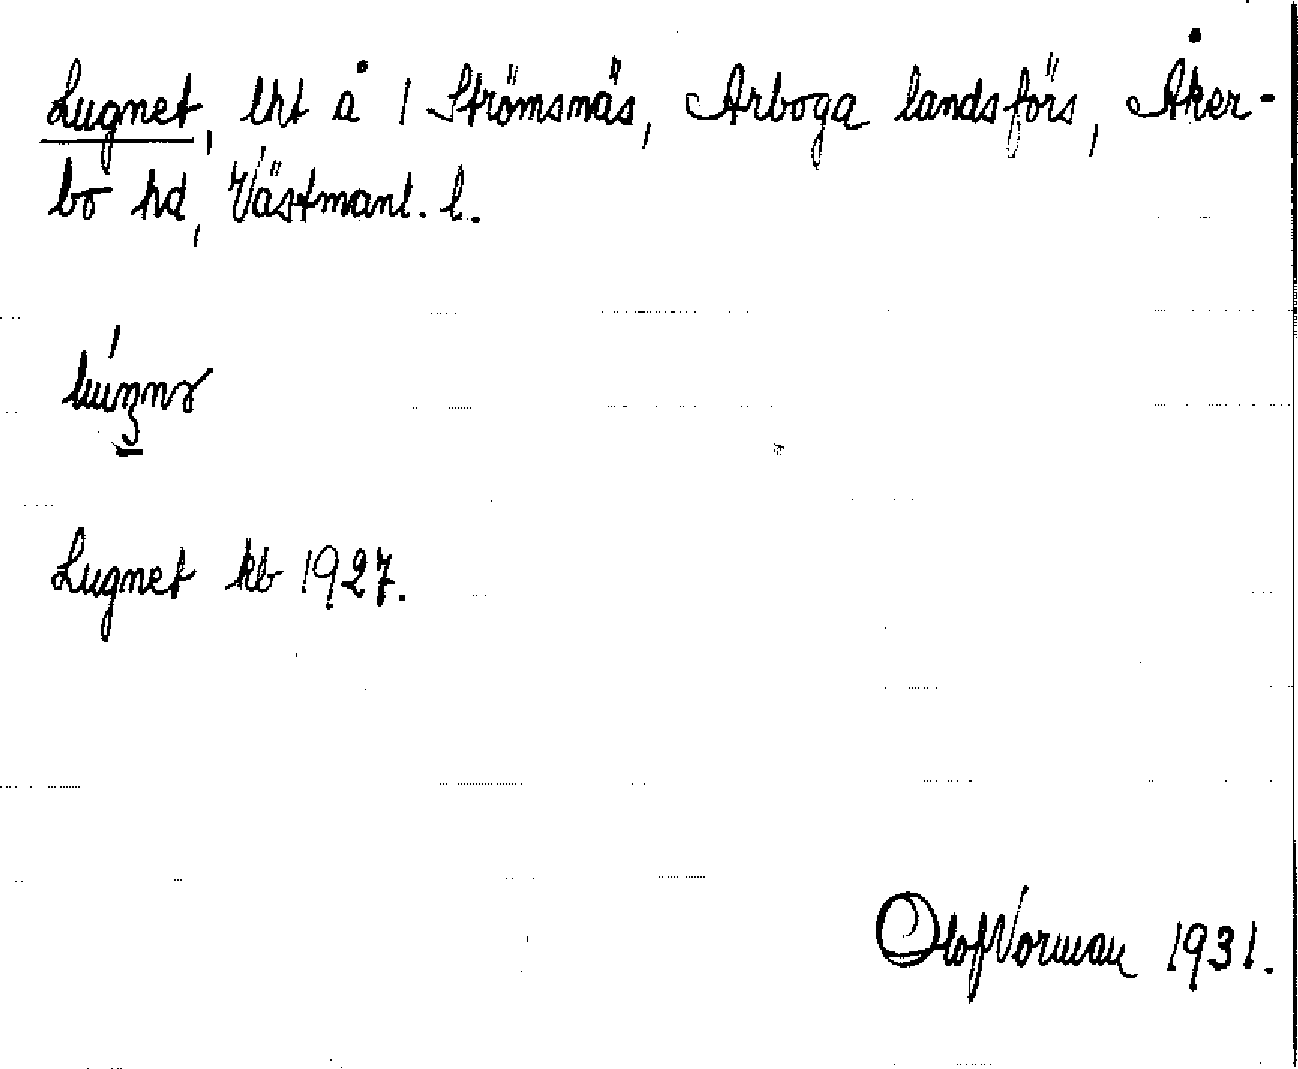 Lugnet, lht å 1 Strömsnäs, Arboga landsförs, Åker-
bo hd, Västmanl. l.
Lugnet kb 1927.
Olof Norman 1931.